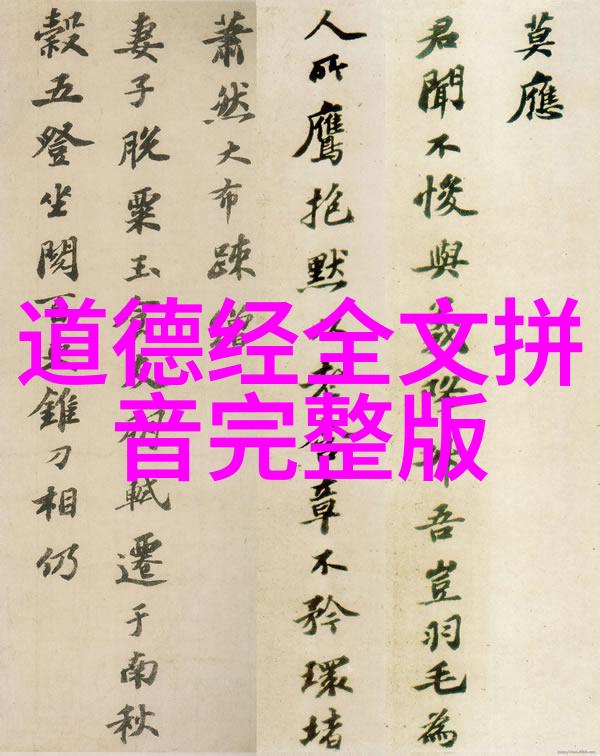 道德经全文拼
音完整版
莫應
君聞不悛與吾豈羽毛為
人所鷹抱默章不矜環堵
蕭然大布疎
妻子脫粟玉軾遷于南秋
穀五登坐閱錐刀相仍